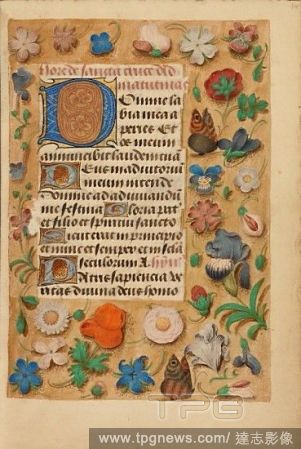 Hore de sancta cruce Ad
matutinas
Domine la
bia mea a
peries Et
os meum
annunciabit laudem tuã
Deus in adiutoriũ
meum intende
Domine ad adiuuandũ
me festina Gloria pat
et filio et spiritui sancto
Sicut erat in principio
et nunc et semper et in secla
seculorum A.
Patris sapiencia ve
ritas diuina deus homo
TPG
www.tpgnews.com/ 達志影像